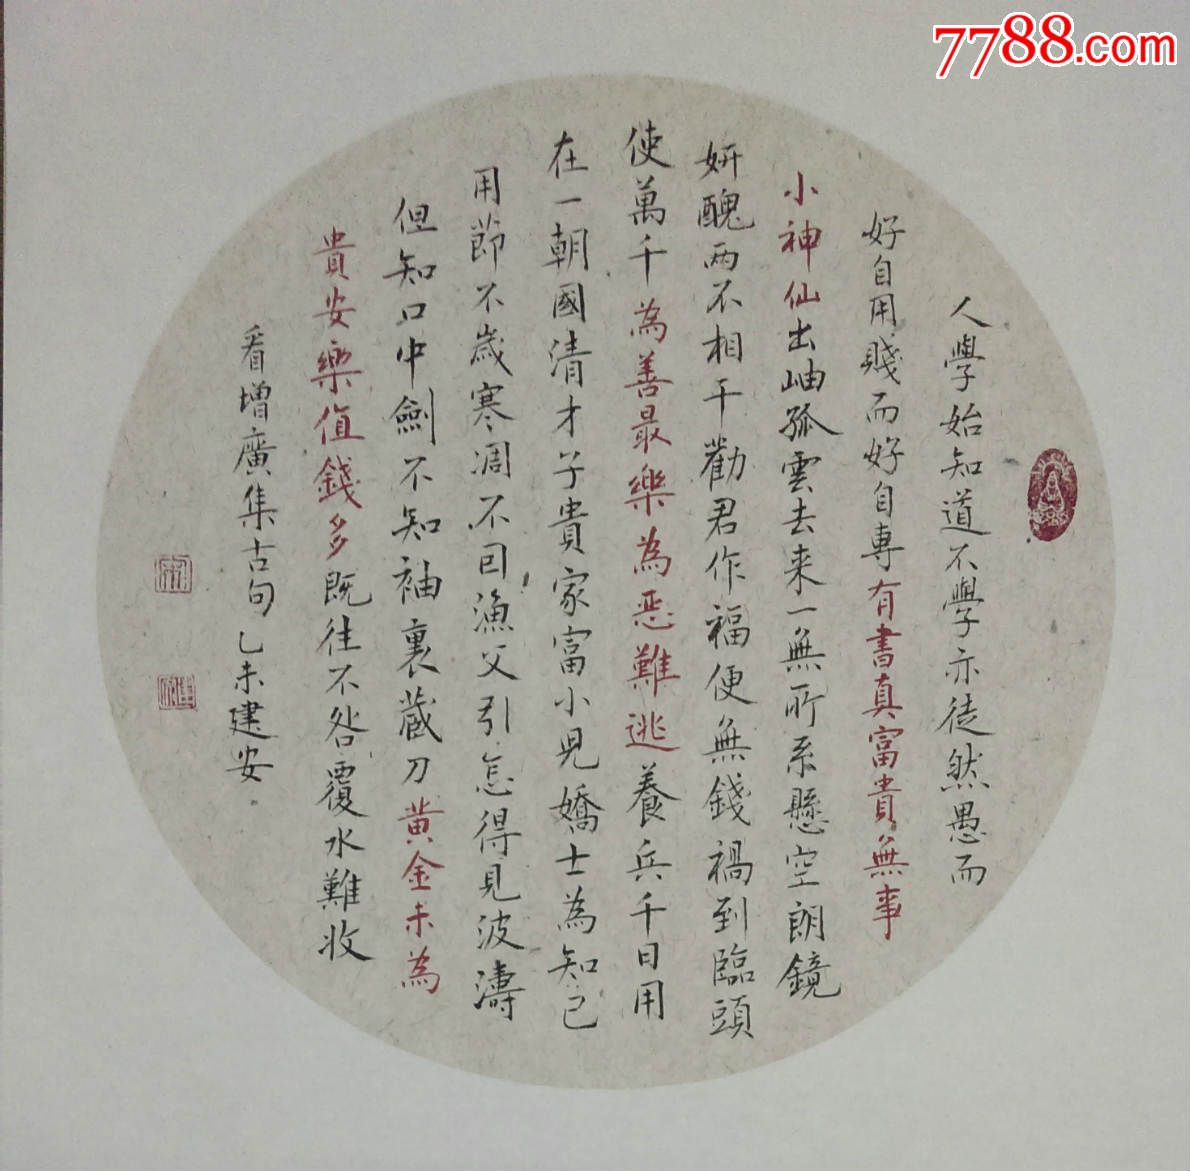 7788.com
人學始知道不學亦徒然愚而
好自用賤而好自專有書真富貴無事
小神仙出岫孤雲去来一無所系懸空朗鏡
妍醜两不相干勸君作福便無錢禍到臨頭
使萬千為善最樂為恶難逃養兵千日用
在一朝國清才子貴家富小児嬌士為知己
用節不歲寒凋不因漁父引怎得見波濤
但知口中劍不知袖裏蔵刀黄金未為
貴安樂值錢多既往不咎覆水難收
看增廣集古句乙未建安